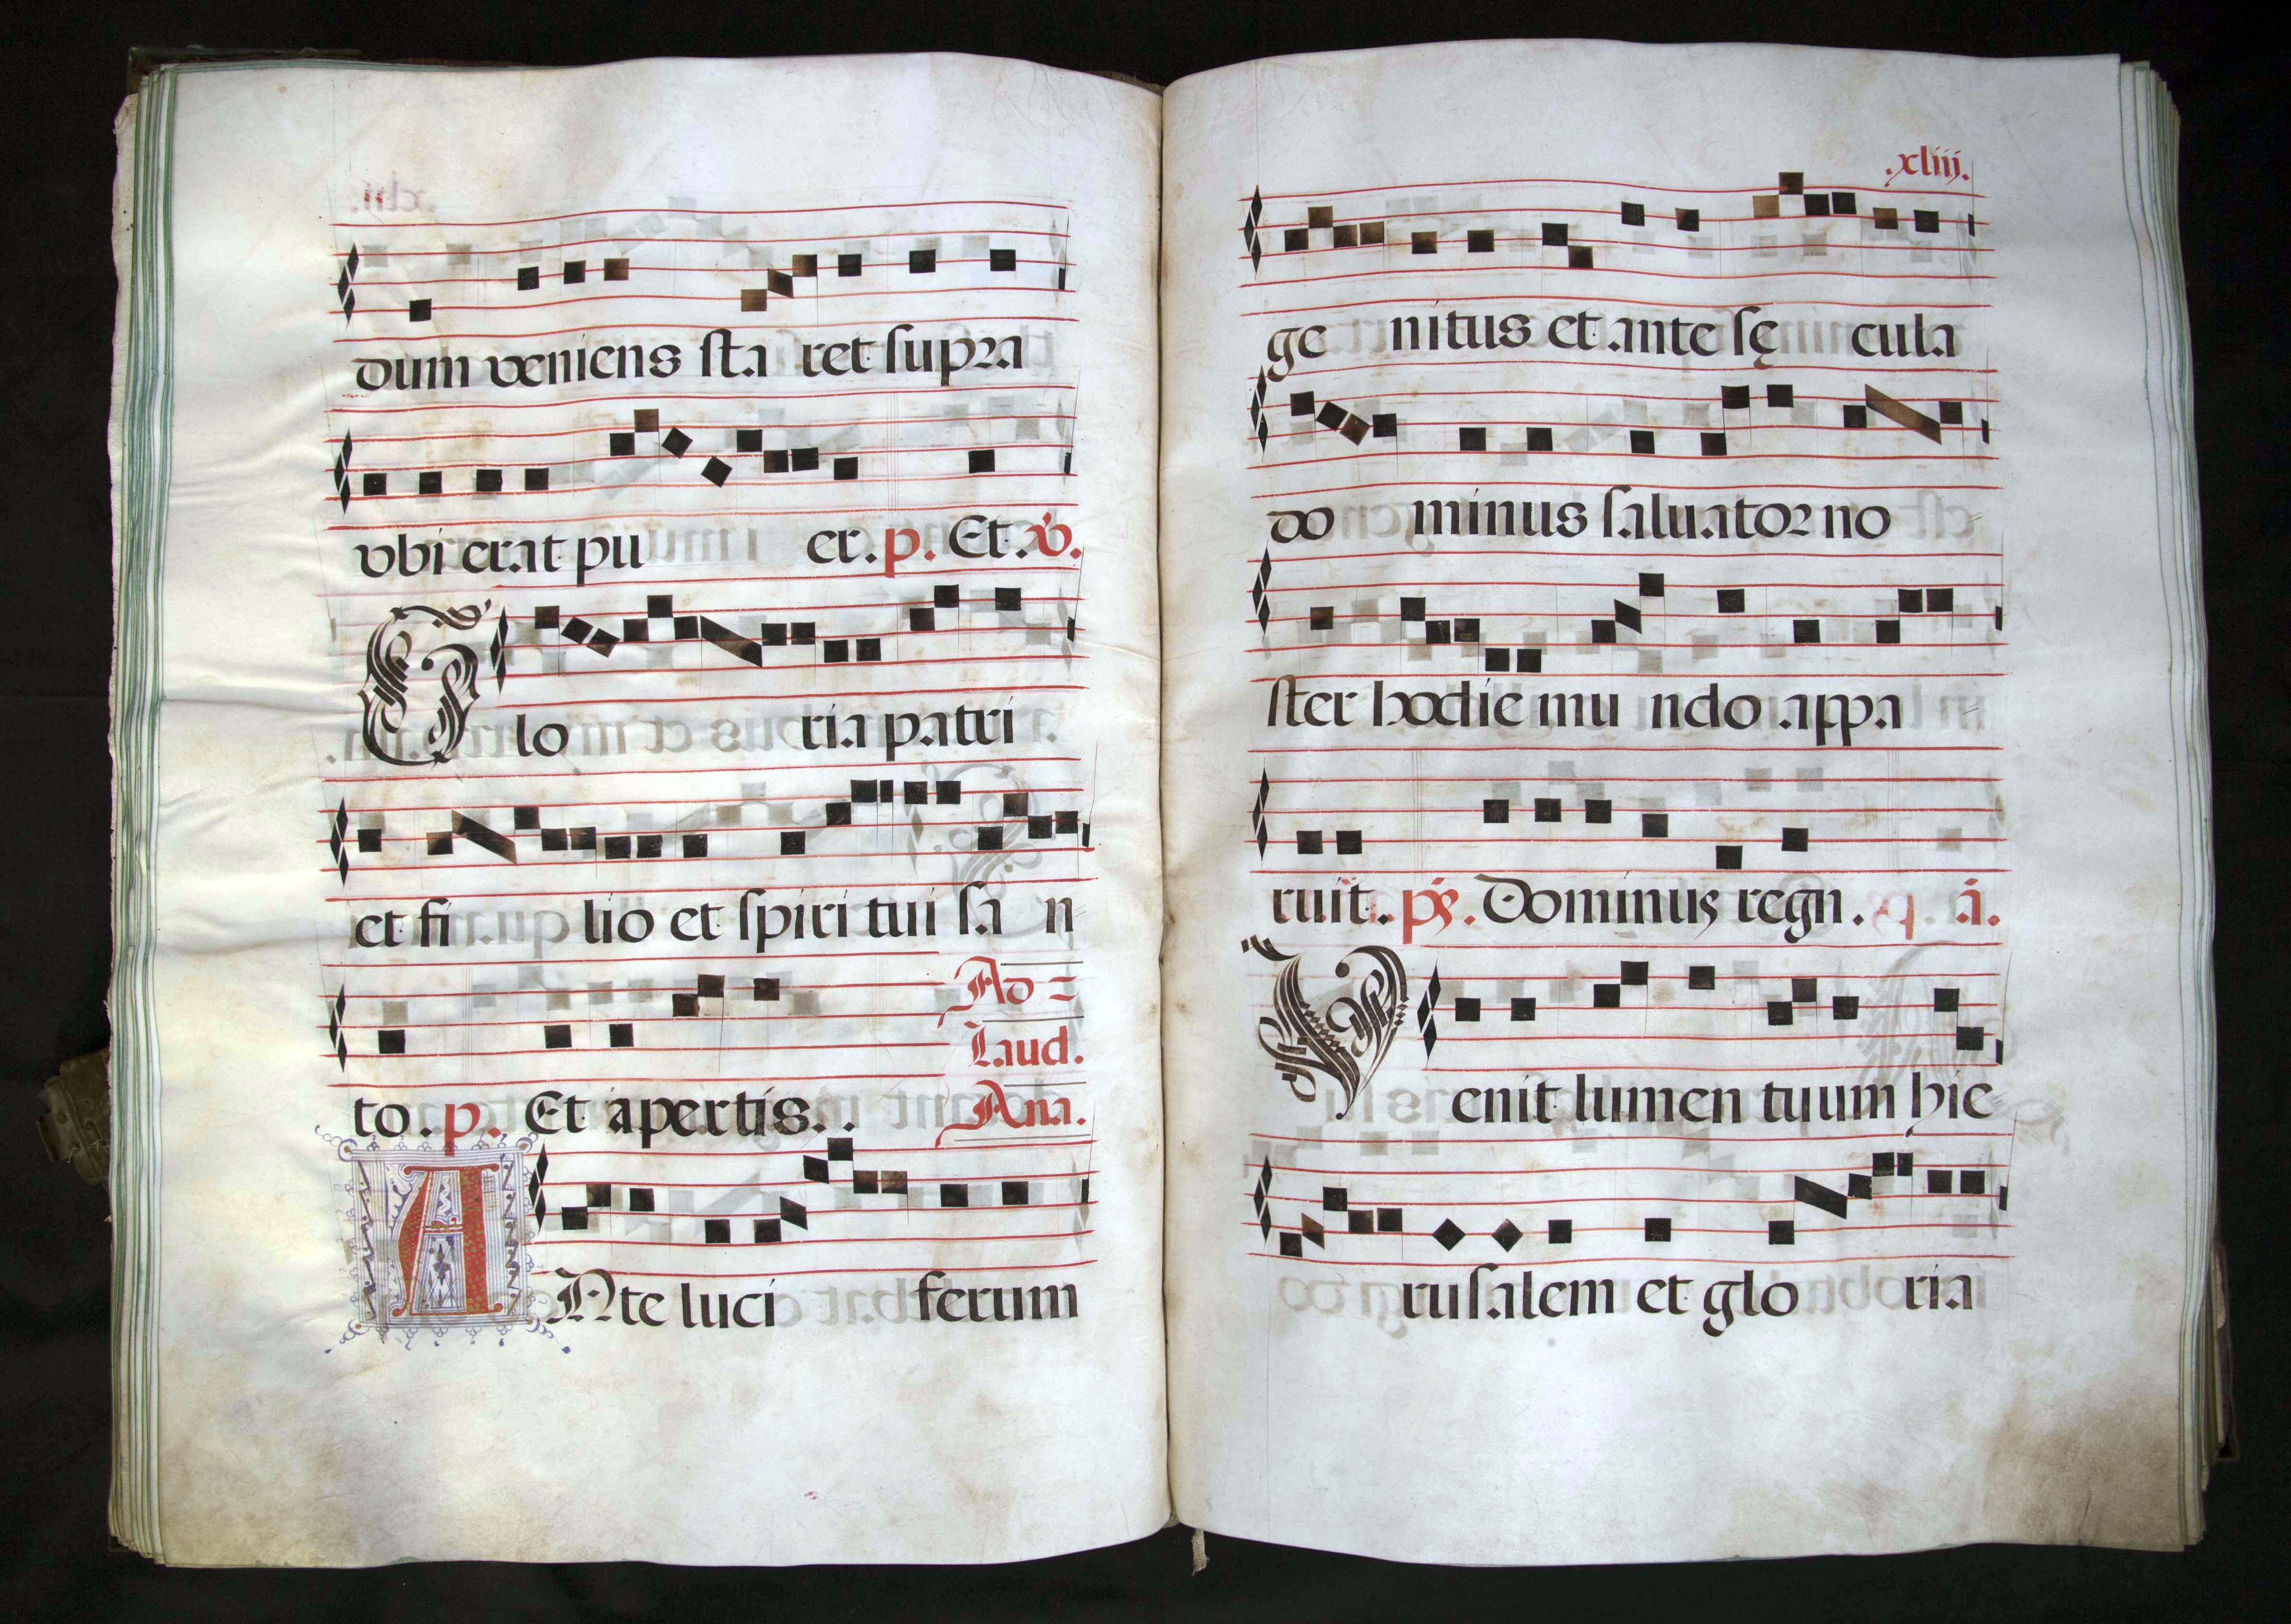 dum veniens sta ret supra
vbi erat pu er. p. Et. v̇.
Glo ria patri
et fi lio et spiri tui sa n
to. p. Et apertis..
Ad=
Laud.
Ana.
ANte luci ferum
.xliij.
ge nitus et ante sę cula
do minus saluator no
ster hodie mu ndo appa
ruit. ps. Dominus regn. a.
Venit lumen tuum hie
rusalem et glo ria